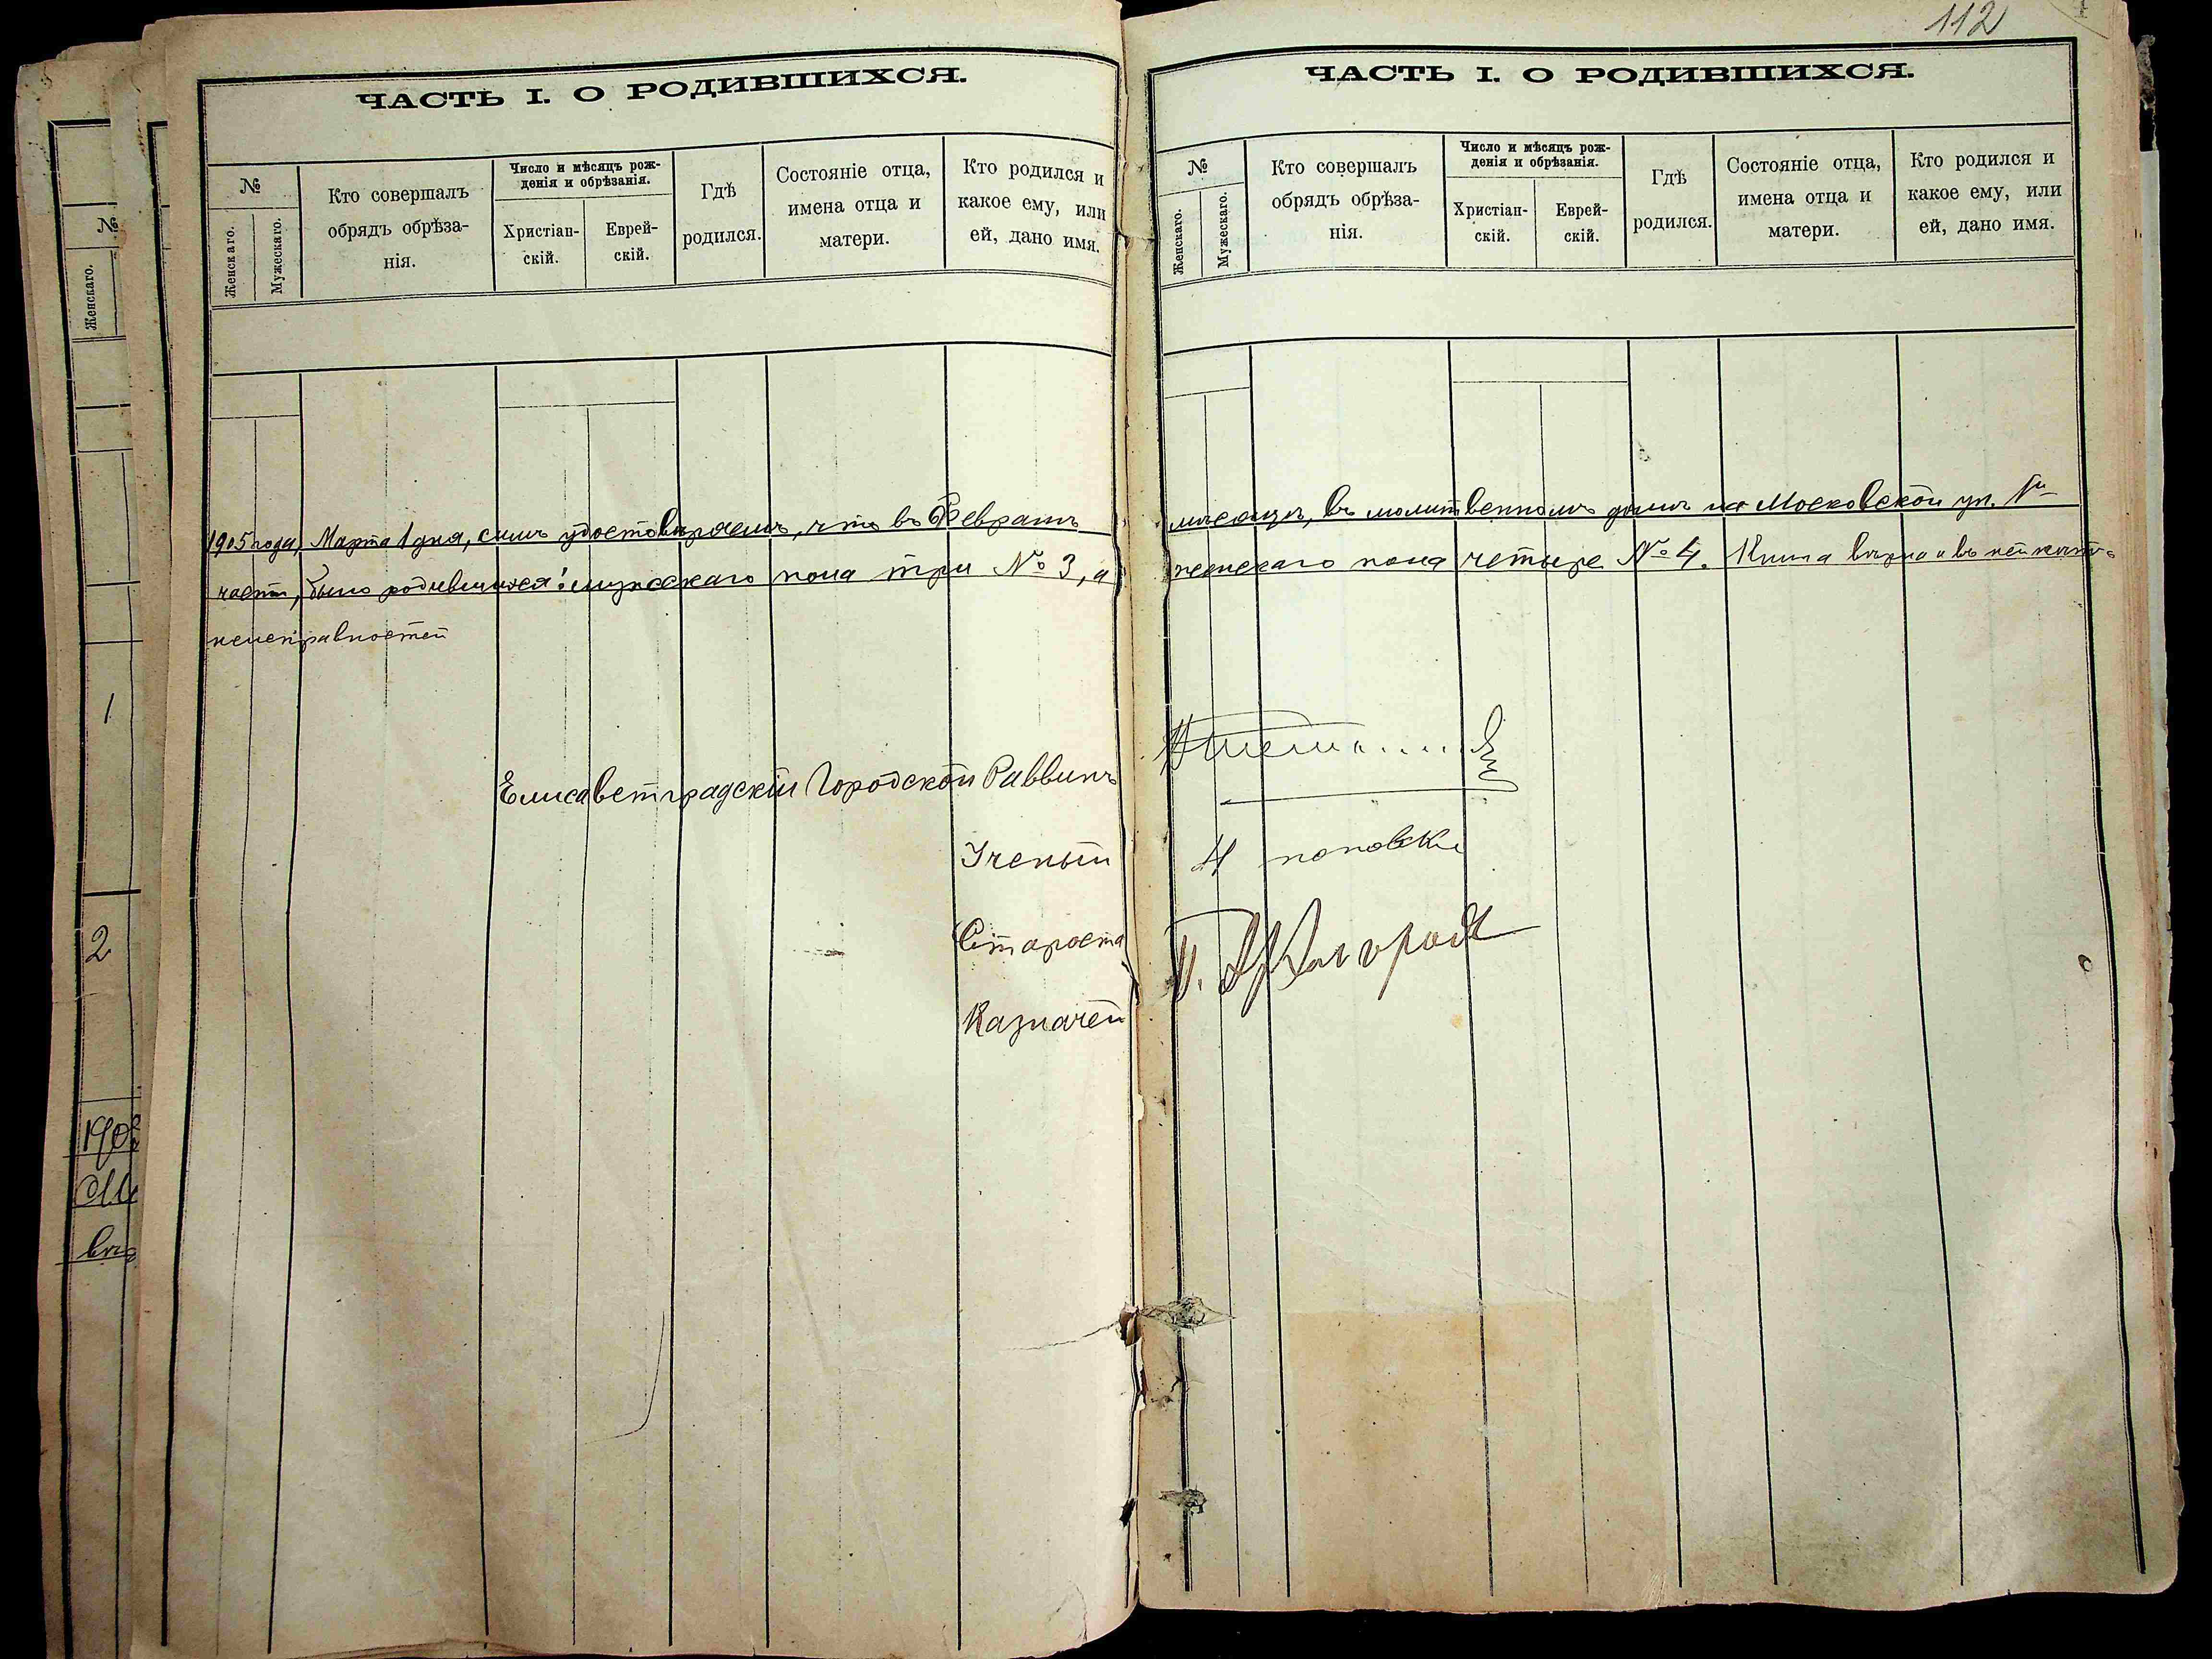 112
ЧАСТЬ I. О РОДИВШИХСЯ.
№
Женскаго.
Мужескаго.
Кто совершалъ
обрядъ обрѣза-
нія.
Число и мѣсяцъ рож-
денія и обрѣзанія.
Христіан-
скій.
Еврей-
скій.
Гдѣ
родился.
Состояніе отца,
имена отца и
матери.
Кто родился и
какое ему, или
ей, дано имя.
1905 года, Марта 1 дня, симъ удостовѣряемъ, что въ Февралѣ
было родившихся: мужескаго пола три № 3, а
неисправностей
Елисаветградскій Городской Раввинъ
Ученый
Староста
Казначей
ЧАСТЬ I. О РОДИВШИХСЯ.
№
Женскаго.
Мужескаго.
Кто совершалъ
обрядъ обрѣза-
нія.
Число и мѣсяцъ рож-
денія и обрѣзанія.
Христіан-
скій.
Еврей-
скій.
Гдѣ
родился.
Состояніе отца,
имена отца и
матери.
Кто родился и
какое ему, или
ей, дано имя.
мѣсяцѣ, въ молитвенномъ домѣ на Московской ул.
женскаго пола четыре № 4. Книга вѣрна и въ ней
№
Женскаго.
1
2